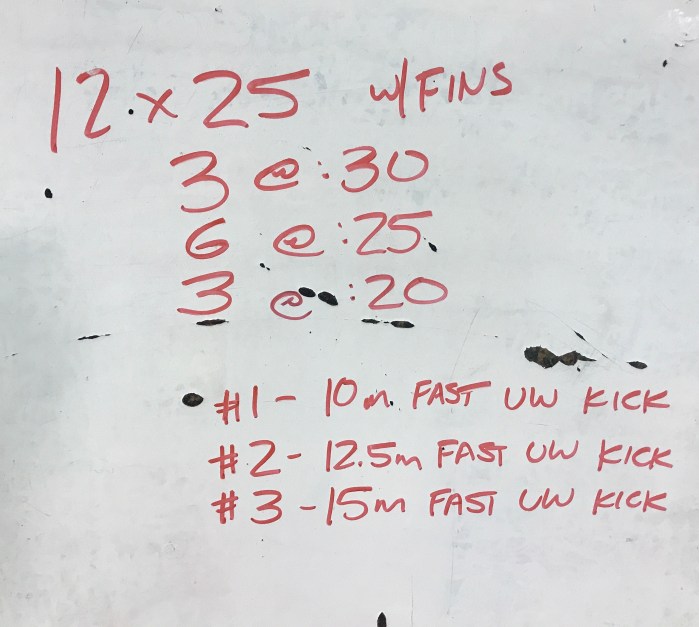 12 x 25 w/FINS
3 @ :30
6 @ :25
3 @ :20
#1 - 10m FAST UW KICK
#2 - 12.5m FAST UW KICK
#3 - 15m FAST UW KICK